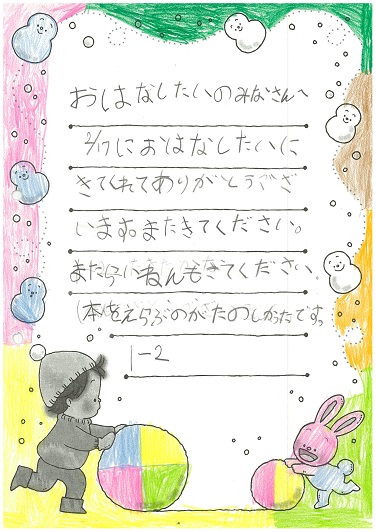 おはなしたいのみなさんへ
2/17におはなしたいに
きてくれてありがとうござ
います。またきてください。
またらいねんもきてください。
(本をえらぶのがたのしかったです。
1-2